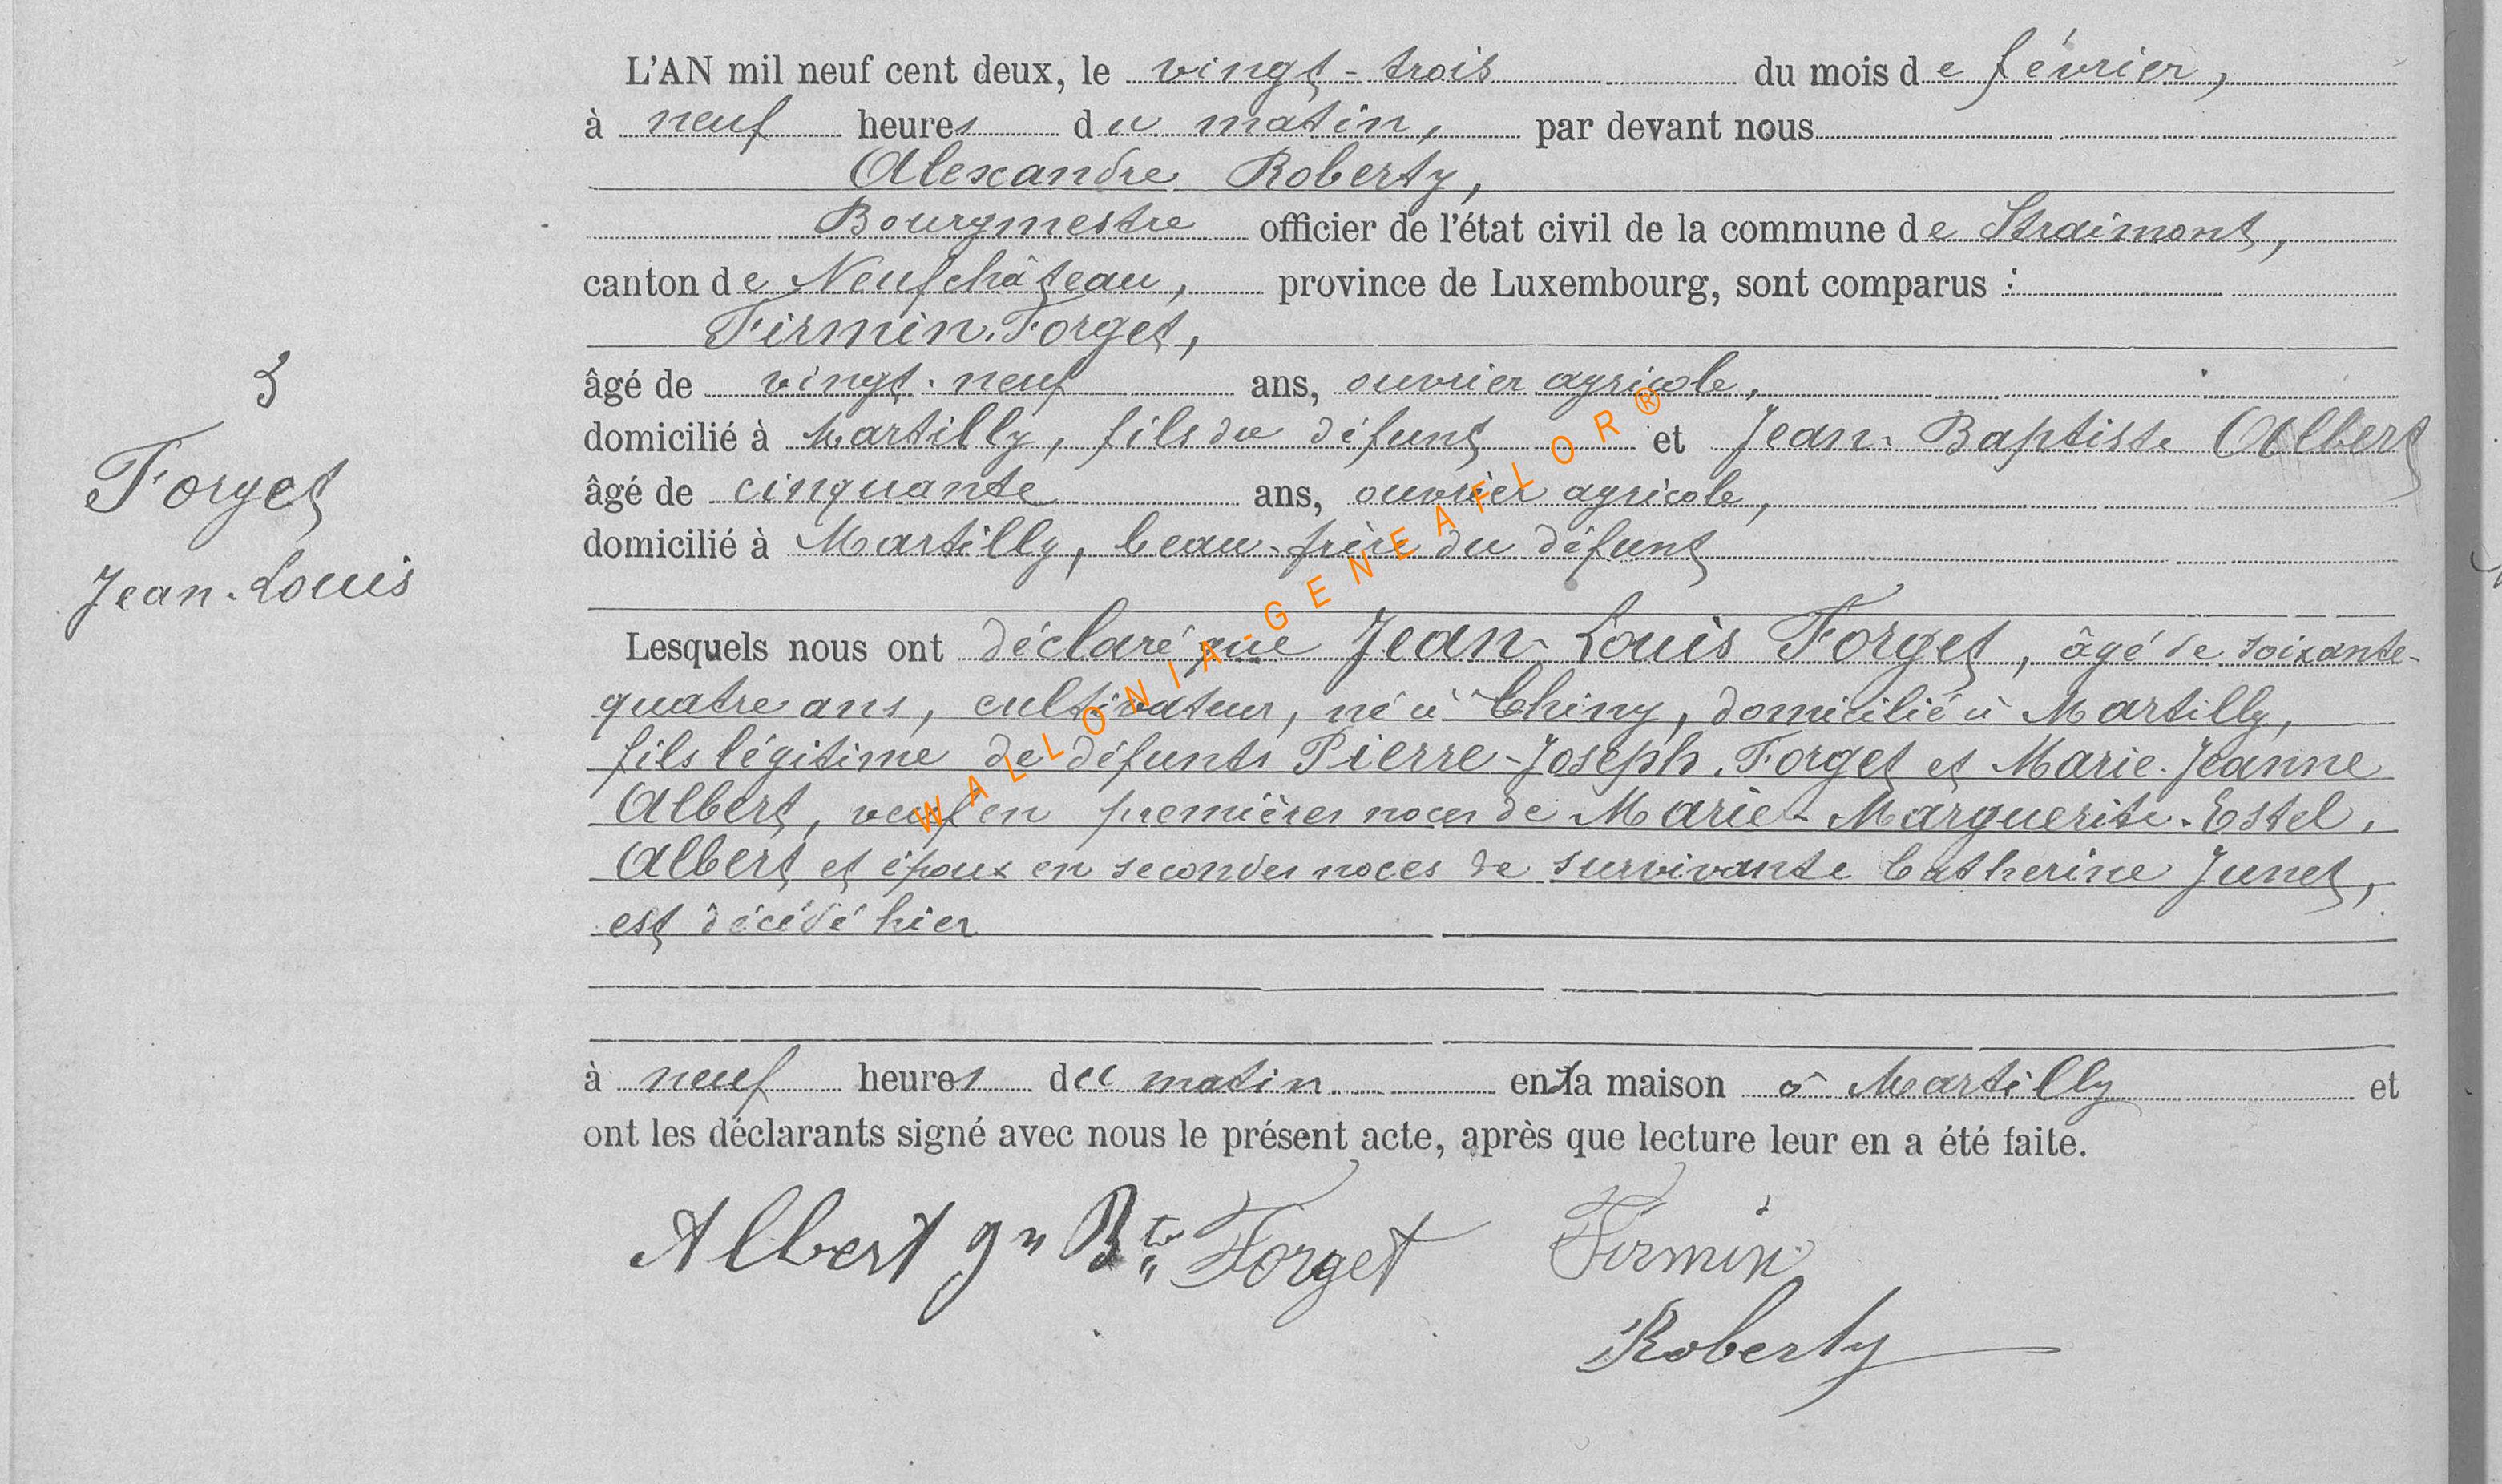 L'AN mil neuf cent deux, le vingt-trois du mois de février,
à neuf heures du matin, par devant nous
Alexandre Roberty,
Bourgmestre officier de l'état civil de la commune de Straimont,
canton de Neufchâteau, province de Luxembourg, sont comparus :
Firmin Forget,
âgé de vingt-neuf ans, ouvrier agricole,
domicilié à Martilly, fils du défunt et Jean-Baptiste Albert
âgé de cinquante ans, ouvrier agricole,
domicilié à Martilly, beau-frère du défunt
3
Forget
Jean-Louis
Lesquels nous ont déclaré que Jean-Louis Forget, âgé de soixante-
quatre ans, cultivateur, né à Chiny, domicilié à Martilly,
fils légitime de défunts Pierre-Joseph Forget et Marie-Jeanne
Albert, veuf en premières noces de Marie-Marguerite-Estel
Albert et époux en secondes noces de survivante Catherine Junet,
est décédé hier
à neuf heures du matin en la maison à Martilly et
ont les déclarants signé avec nous le présent acte, après que lecture leur en a été faite.
Albert Jn Bte Forget Firmin
Roberty
WALLONIA-GENEAFLOR®